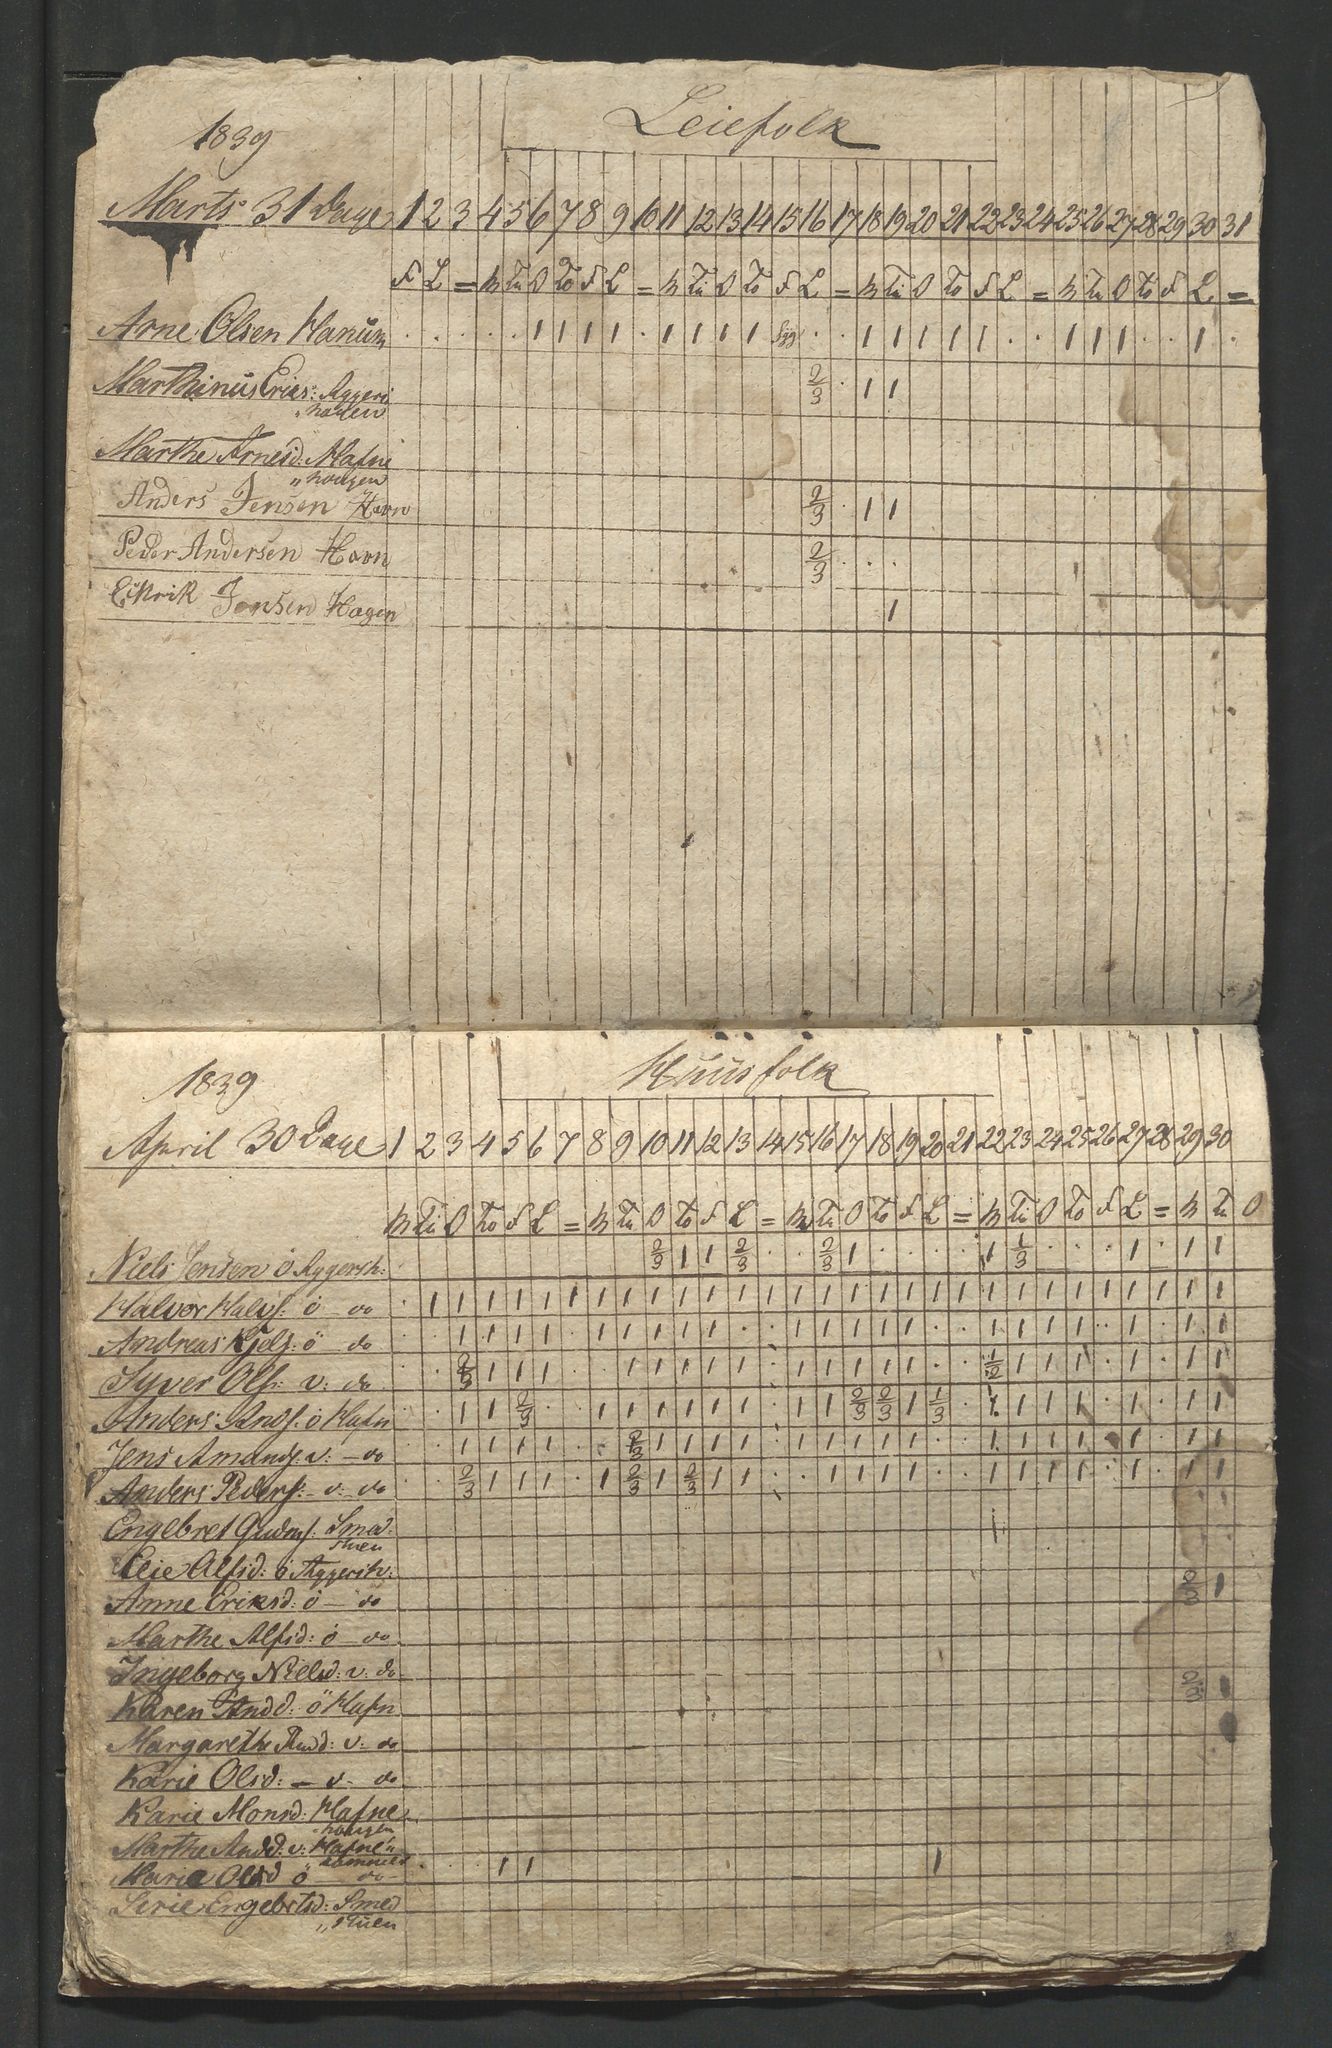 Leiefolk
1839
Marts 31 Dage 1 2 3 4 5 6 7 8 9 10 11 12 13 14 15 16 17 18 19 20 21 22 23 24 25 26 27 28 29 30 31
F L = M Ti O To F L = M Ti O To F L = M Ti O To F L = M Ti O To F L =
Arne Olsen Hanum . . . . . 1 1 1 1 . 1 1 1 1 Syg . . 1 1 1 1 1 . . 1 1 1 . . 1 .
Marthinus Eries: Aggers 2/3 . 1 1
"hougen
Marthe Arnesd: Hafne
"hougen
Anders Jensen Havn 2/3 . 1 1
Peder Andersen Havn 2/3 . . .
Jensen Hagen 1
Huusfolk
1839
April 30 Dage 1 2 3 4 5 6 7 8 9 10 11 12 13 14 15 16 17 18 19 20 21 22 23 24 25 26 27 28 29 30
M Ti O To F L = M Ti O To F L = M Ti O To F L = M Ti O To F L = M Ti O
Niels Jensen ö Aggersh: 2/3 1 1 2/3 . . 2/3 1 . . . . 1 1/3 . . . 1 . 1 1
Halvor Halvs: ö do . 1 1 1 1 1 1 1 1 1 1 1 1 1 1 1 1 1 1 1 1 1 1 1 1 1 1 1 1 1
Andreas Kjels: ö do . . 1 1 1 1 . 1 1 1 1 1 . . 1 1 1 1 1 . . 1 1 1 1 . 1 . 1 1
Syver Ols: v: do . . 2/3 1 1 1 . . 1 1 1 1 1 . 1 1 1 1 1 . . 1/2 1 1 1 . 1 . 1 1
Anders Ands: ö Hafn . . 1 1 2/3 . . 1 1 1 1 1 1 . 1 1 2/3 2/3 1 1/3 . 1 1 1 1 . 1 . 1 1
Jens Amands: v: do . . 1 1 1 1 . . 2/3 1 1 1 1 . 1 1 1 1 1 . . 1 1 1 1 . 1 . 1 1
Anders Peders: v: do . . 2/3 1 1 1 . 1 2/3 1 2/3 1 1 . . 1 1 1 1 . . 1 1 1 1 . 1 . 1 1
Engebret Gudms: Smed 1
stuen
Eeie Alfsd: ö Aggersh:
Anne Eriksd: ö do 2/3 1
Marthe Alfsd: ö do
Ingeborg Nielsd: v: do
Karen Andd: ö Hafn 2/3 1
Margarethe Andd: v: do
Karie Olsd: v: do
Karie Monsd: Hafne
hougen
Marthe Andd: v: Hafne"
Marie Olsd ö do . . 1 1 1
Sirie Engebrtsd: Smed
"stuen